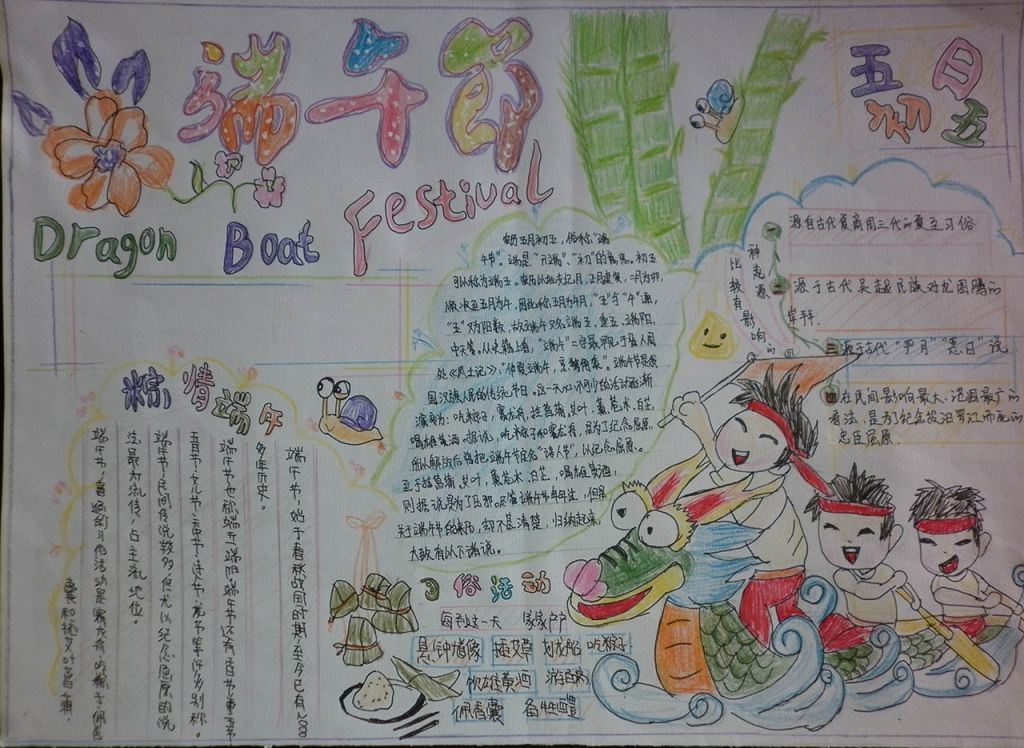 端午節
Dragon Boat Festival
五日
初五
农历五月初五，俗称"端
午节"。端是"开端"、"初"的意思。初五
可以称为端五。农历以地支纪月，正月建寅，二月为卯，
顺次至五月为午，因此称五月为午月，"五"与"午"通，
"五"又为阳数，故端午又名端五、重五、端阳、
中天等。从史籍上看，"端午"二字最早见于晋人周
处《风土记》：
国汉族人民的传统节日。这一天必不可少的活动逐渐
演变为：吃粽子，赛龙舟，挂菖蒲、艾叶，薰苍术、白芷，
喝雄黄酒。据说，吃粽子和赛龙舟，是为了纪念屈原，
所以解放后曾把端午节定名"诗人节"，以纪念屈原。
至于挂菖蒲、艾叶，薰苍术、白芷，喝雄黄酒，
则据说是为了压邪。
关于端午节的来历，却不甚清楚，归纳起来，
大致有以下诸说。
比较有影响的
四种起源
一 源自古代夏商周三代的夏至习俗
二 源于古代吴越民族对龙图腾的
崇拜.
三 源于古代"恶日"说
四 在民间影响最大、范围最广的
看法，是为纪念投汨罗江而死的
忠臣屈原.
粽情端午
端午节，始于春秋战国时期，至今已有2000
多年历史。
端午节也称端五、端阳。端午节还有
五月节、
端午节民间传说较多，但尤以纪念屈原的说
法最为流传，占主流地位。
端午节
囊和挂艾叶菖蒲。
习俗活动
每到这一天 家家户户
悬钟馗像 插艾草 划龙船 吃粽子
饮雄黄酒 游百病
佩香囊 备牲醴